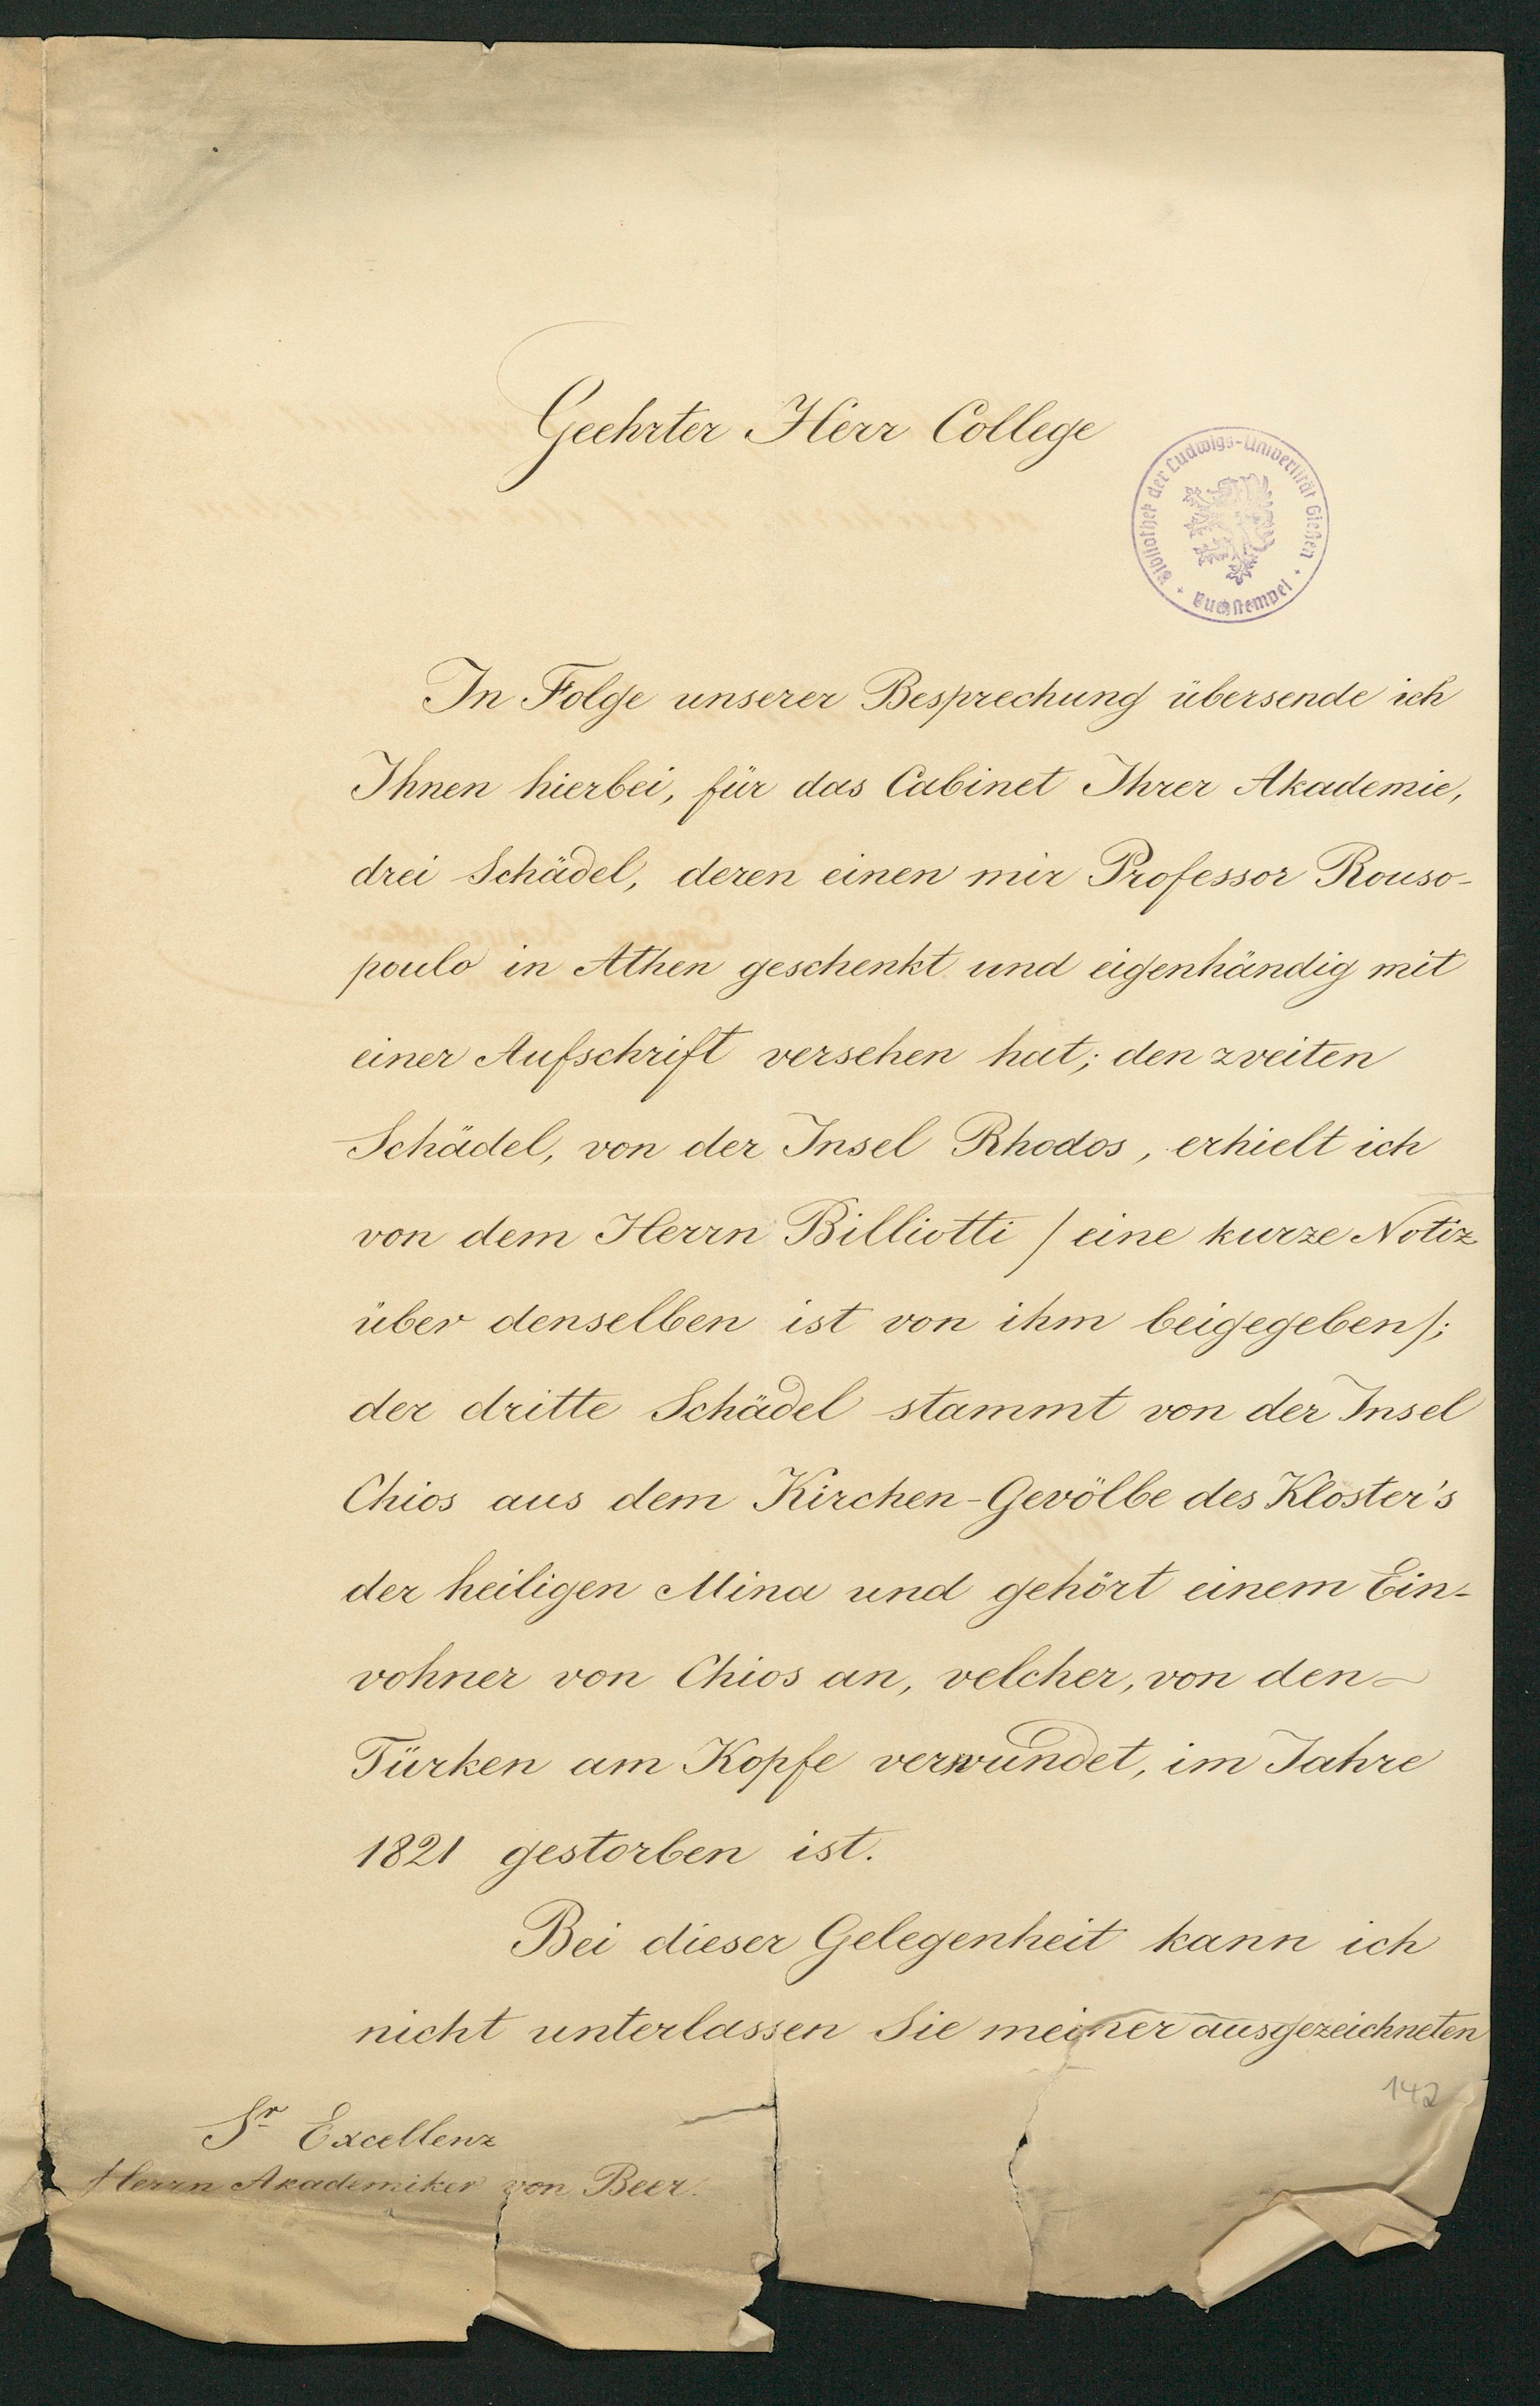 Geehrter Herr College
Bibliothek der Ludwigs-Universität Gießen
Buchstempel
In Folge unserer Besprechung übersende ich
Ihnen hierbei, für das Cabinet Ihrer Akademie,
drei Schädel, deren einen mir Professor Rouso-
poulo in Athen geschenkt und eigenhändig mit
einer Aufschrift versehen hat; den zveiten
Schädel, von der Insel Rhodos, erhielt ich
von dem Herrn Billiotti / eine kurze Notiz
über denselben ist von ihm beigegeben /;
der dritte Schädel stammt von der Insel
Chios aus dem Kirchen-Gevölbe des Kloster's
der heiligen Mina und gehört einem Ein-
vohner von Chios an, velcher, von den
Türken am Kopfe verwundet, im Jahre
1821 gestorben ist.
Bei dieser Gelegenheit kann ich
nicht unterlassen Sie meiner ausgezeichneten
142
Sr Excellenz
Herrn Akademiker von Beer.